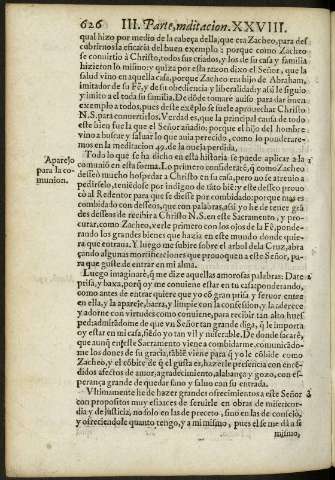 626 III. Parte, meditacion. XXVIII.
qual hizo por medio de la cabeça della, que era Zacheo, para des
cubrirnos la eficacia del buen exemplo: porque como Zacheo
se conuirtio à Christo, todos sus criados, y los de su casa y familia
hizieron lo mismo: y quiza por esta razon dixo el Señor, que la
salud vino en aquella casa, porque Zacheo era hijo de Abraham,
imitador de su Fè, y de su obediencia y liberalidad: y assi le siguio
y imito a el toda su familia. De dōde tomarè auiso para dar buen
exemplo a todos, pues dirle exēplo se suele aprouechar Christo
N.S. para conuertirlos. Verdad es, que la principal causa de todo
este bien fue la que el Señor añadio: porque el hijo del hombre
vino a buscar y saluar lo que auia perecido, como lo ponderare-
mos en la meditacion 49. de la oueja perdida.
Aparejo
para la co-
munion.
Todo lo que se ha dicho en esta historia se puede aplicar a la
comuniō en esta forma. Lo primero considerarè, q̃ como Zacheo
desseò mucho hospedar a Christo en su casa, pero no se atreuio a
pedirselo, teniēdose por indigno de tāto biē: y este desseo prouo
cò al Redentor para q̃ se diesse por combidado: porque mas es
combidado con desseos, que con palabras, assi yo he de tener grā
des desseos de recibir a Christo N.S. en este Sacramento, y pro-
curar, como Zacheo, verle primero con los ojos de la Fè, ponde-
rando los grandes bienes que hazia en este mundo donde quie-
ra que entraua. Y luego me subire sobre el arbol de la Cruz, abra
çando algunas mortificaciones que prouoquen a este Señor, pa-
ra que guste de entrar en mi alma.
Luego imaginarè, q̃ me dize aquellas amorosas palabras: Date
prisa, y baxa, porq̃ oy me conuiene estar en tu casa: ponderando,
como antes de entrar quiere que yo cō gran prisa y feruor entre
en ella, y la apareje, barra, y limpie con la confession, y la aderece
y adorne con virtudes como conuiene, para recibir tan alto hues
ped: admirādome de que vn Señor tan grande diga, q̃ le importa
oy estar en mi casa, siēdo yo tan vil y miserable. De donde sacarè,
que aunq̃ en este Sacramento viene a combidarme, comunicādo-
me los dones de su gracia, tābiē viene para q̃ yo le cōbide como
Zacheo, y el cōbite de q̃ el gusta es, hazerle presencia con encē-
didos afectos de amor, agradecimiento, alabança y gozo, con es-
perança grande de quedar sano y saluo con su entrada.
Vltimamente he de hazer grandes ofrecimientos a este Señor
con propositos muy eficaces de seruirle en obras de misericor-
dia y de justicia, no solo en las de precepto, sino en las de consejo,
y ofreciendole quanto tengo, y a mi mismo, pues el se me dà a si
mismo,